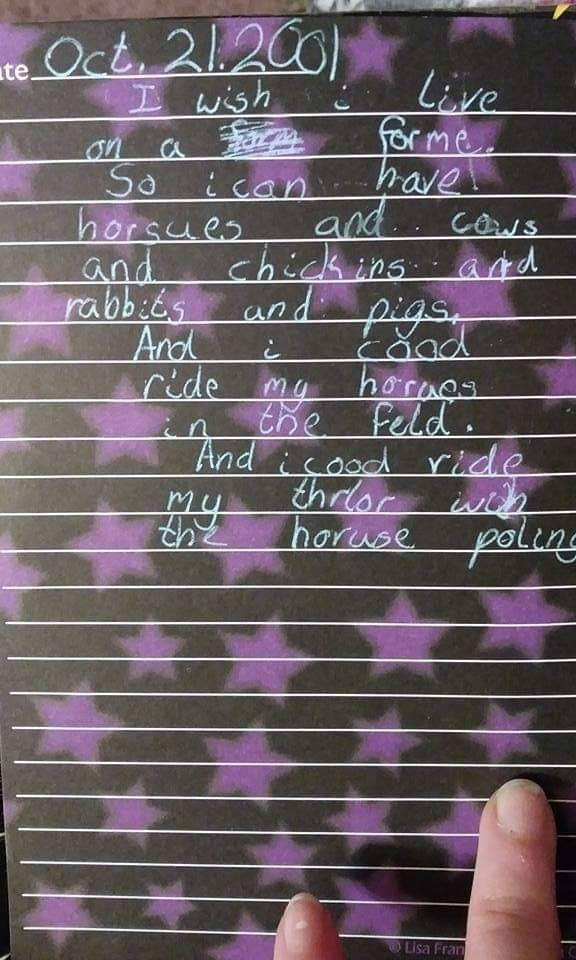 ate Oct. 21. 2001
I wish i Live
on a forme.
So i can have
horsues and cows
and chickins and
rabbits and pigs.
And i cood
ride my horues
in the feld.
And i cood ride
my thrlor wich
the horuse poling
© Lisa Fran